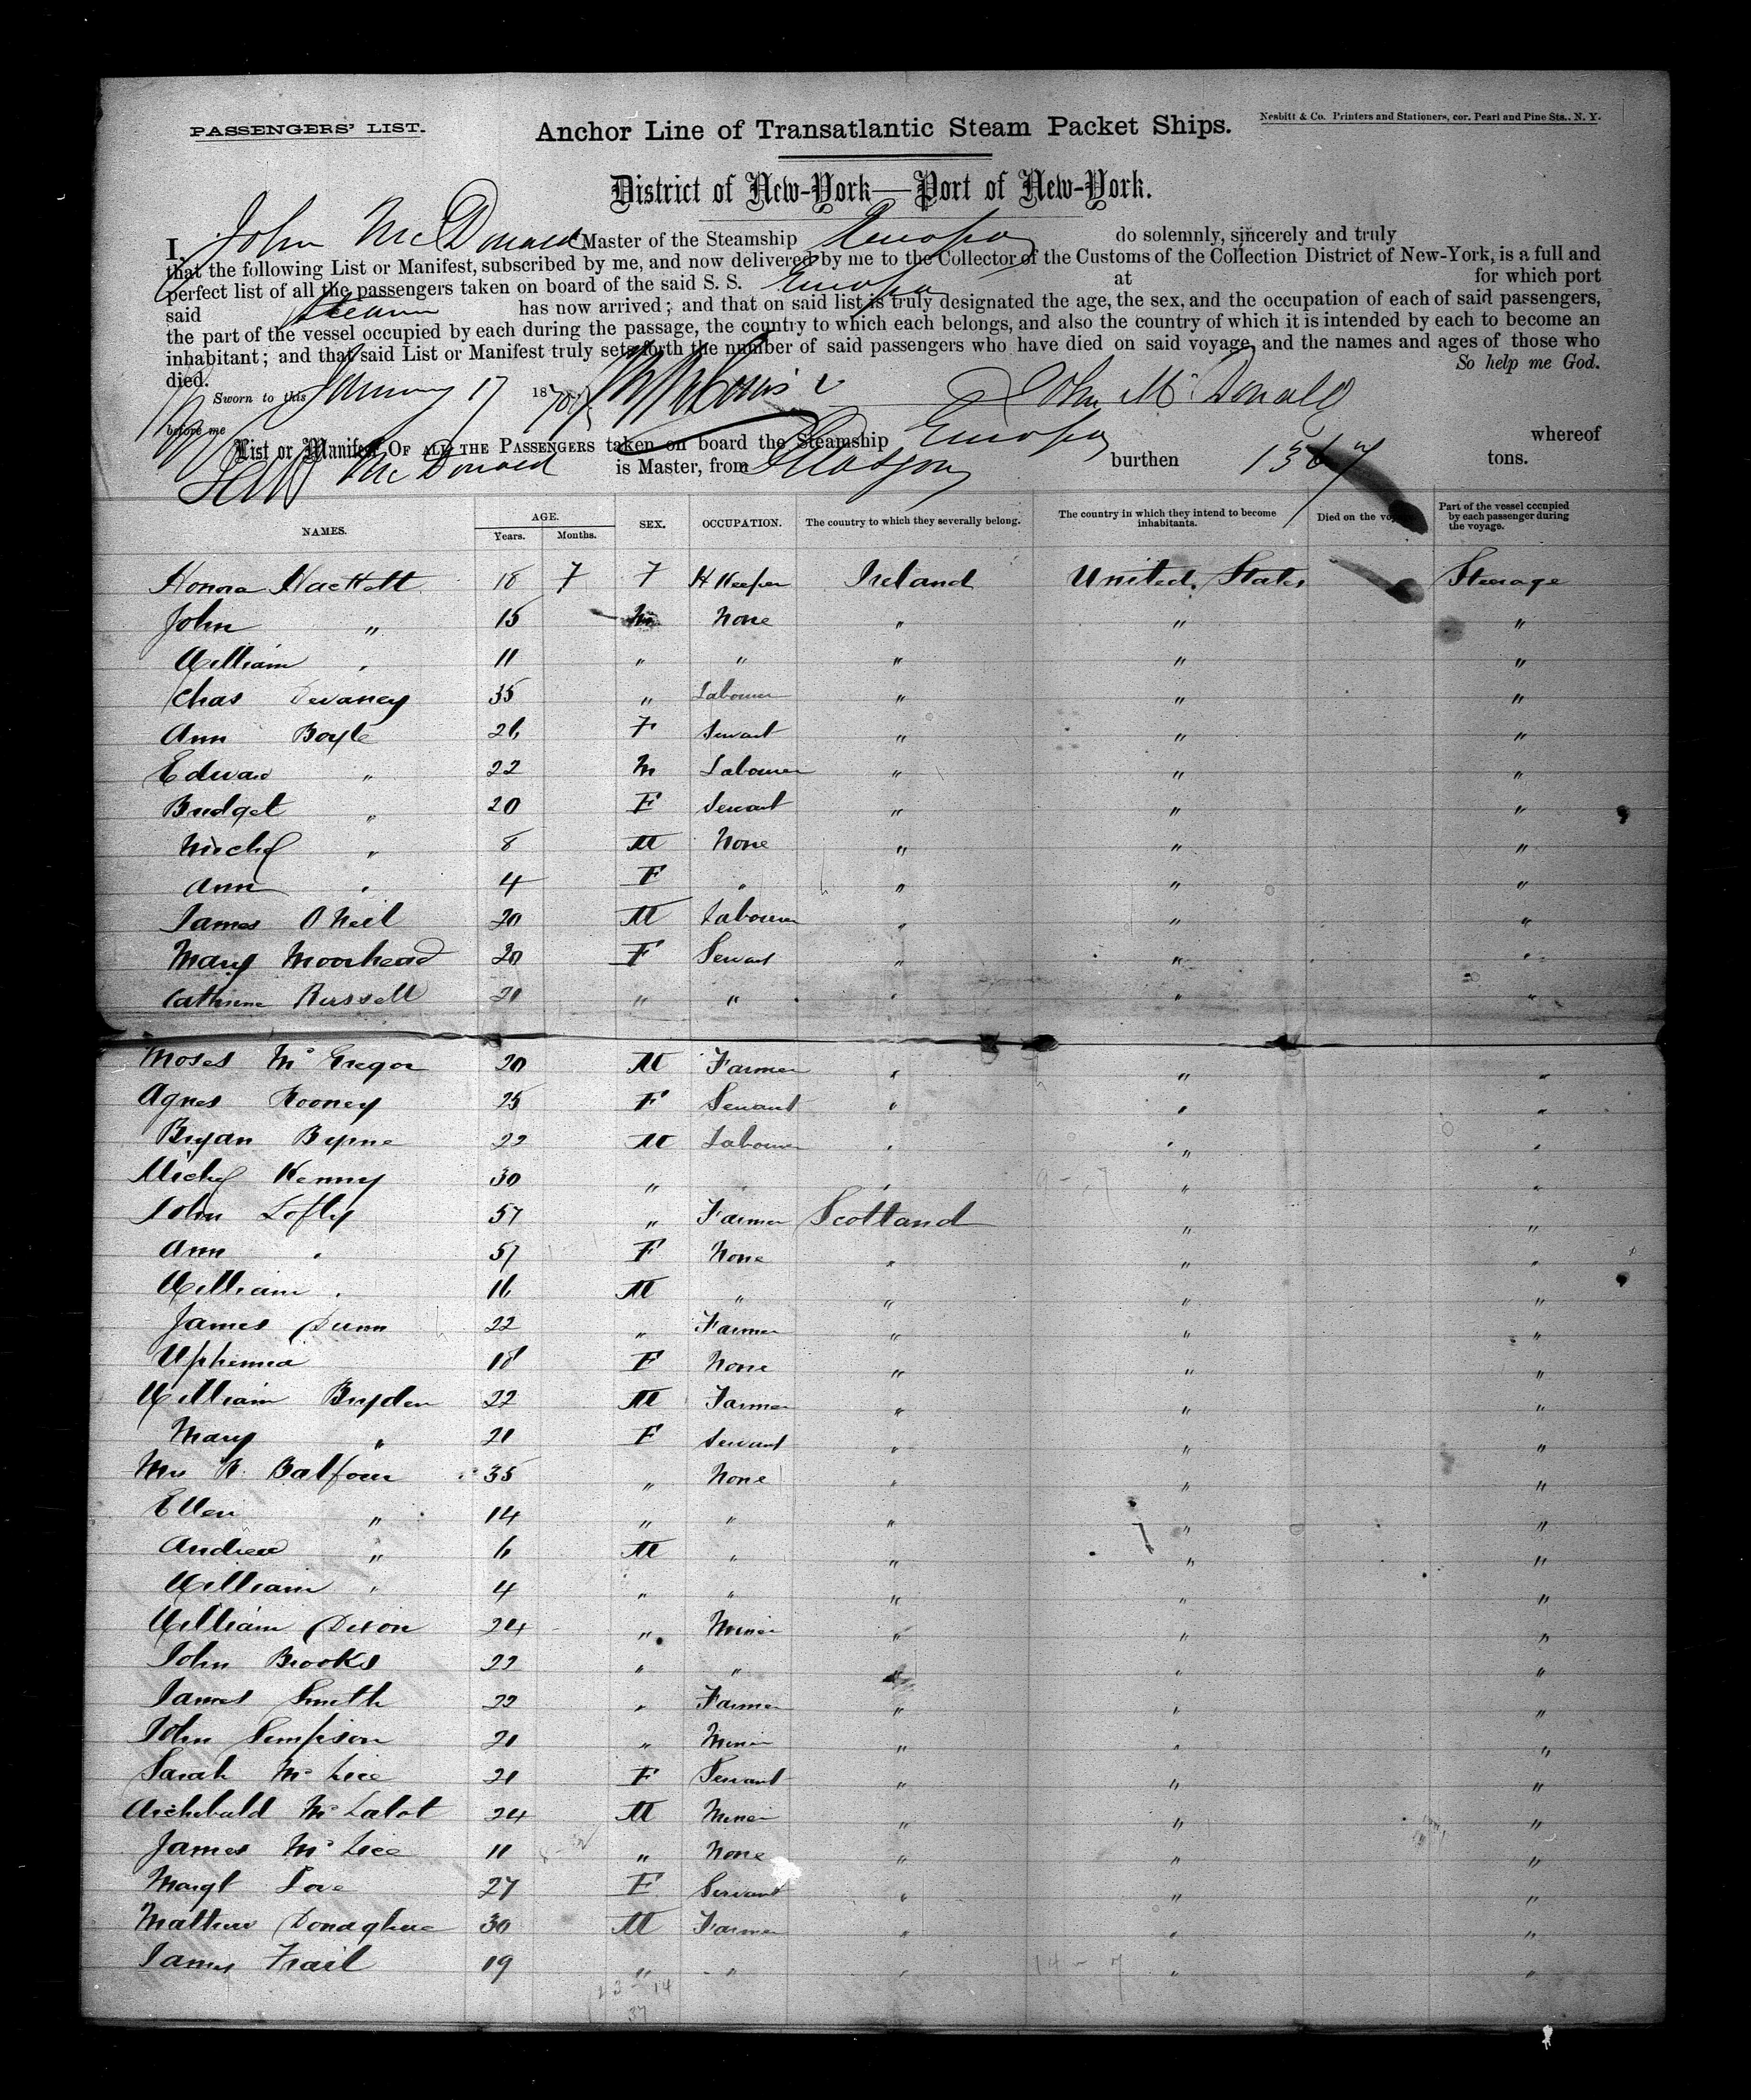 PASSENGERS' LIST.
Anchor Line of Transatlantic Steam Packet Ships.
Nesbitt & Co. Printers and Stationers, cor. Pearl and Pine Sts., N. Y.
District of New-York—Port of New-York.
I, John McDonald Master of the Steamship Europa do solemnly, sincerely and truly
that the following List or Manifest, subscribed by me, and now delivered by me to the Collector of the Customs of the Collection District of New-York, is a full and
perfect list of all the passengers taken on board of the said S. S. Europa at for which port
said Steamer has now arrived; and that on said list is truly designated the age, the sex, and the occupation of each of said passengers,
the part of the vessel occupied by each during the passage, the country to which each belongs, and also the country of which it is intended by each to become an
inhabitant; and that said List or Manifest truly sets forth the number of said passengers who have died on said voyage, and the names and ages of those who
died. So help me God.
Sworn to this January 17 1870 John McDonald
before me
List or Manifest OF ALL THE PASSENGERS taken on board the Steamship Europa whereof
McDonald is Master, from Glasgow burthen tons.
NAMES. AGE. Years. Months. SEX. OCCUPATION. The country to which they severally belong. The country in which they intend to become inhabitants. Died on the voyage Part of the vessel occupied by each passenger during the voyage.
Honora Hackett 18 7 F H Keeper Ireland United States Steerage
John " 15 M None " " "
William " 11 " " " " "
Chas Devaney 35 " Labourer " " "
Ann Boyle 26 F Servant " " "
Edward " 22 M Labourer " " "
Bridget " 20 F Servant " " "
Michl " 8 M None " " "
Ann " 4 F " " " "
James O Neil 20 M Labourer " " "
Mary Moorhead 20 F Servant " " "
Cathrine Russell 20 " " " " "
Moses McGregor 20 M Farmer " " "
Agnes Rooney 25 F Servant " " "
Bryan Byrne 22 M Labourer " " "
Michl Kenny 30 " " " " "
John Lofty 57 " Farmer Scotland " "
Ann " 57 F None " " "
William " 16 M " " " "
James Dunn 22 " Farmer " " "
Uphemia 18 F None " " "
William Bryden 22 M Farmer " " "
Mary " 21 F Servant " " "
Mrs R. Balfour 35 " None " " "
Ellen " 14 " " " " "
Andrew " 6 M " " " "
William " 4 " " " " "
William Dixon 24 " Miner " " "
John Brooks 22 " " " " "
James Smith 22 " Farmer " " "
John Simpson 21 " Miner " " "
Sarah Mc 21 F Servant " " "
Archibald Mc 24 M Miner " " "
James Mc 11 " None " " "
Margt Love 27 F Servant " " "
Mathew Donaghue 30 M Farmer " " "
James Frail 19 " " " " "
14 - 7
23 - 14
37